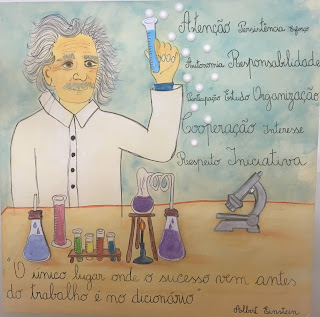 Atenção Persistência Esforço
Autonomia Responsabilidade
Participação Estudo Organização
Cooperação Interesse
Respeito Iniciativa
"O único lugar onde o sucesso vem antes
do trabalho é no dicionário"
Albert Einstein